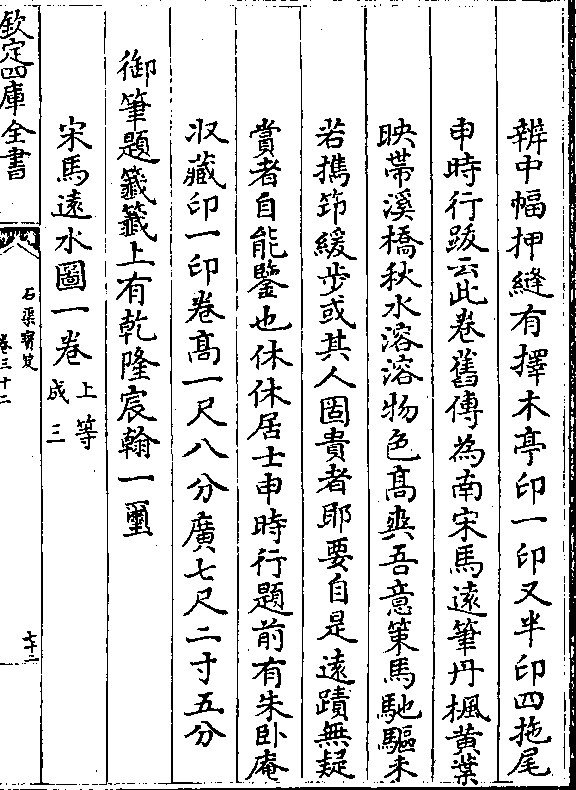 辨中幅押縫有擇木亭印一印又半印四拖尾
申時行跋云此卷舊傳為南宋馬遠筆丹楓黃葉
映帶溪橋秋水溶溶物色髙爽吾意策馬馳驅未
若擕筇緩步或其人固貴者耶要自是遠蹟無疑
賞者自能鑒也休休居士申時行題前有朱卧庵
収藏印一印卷髙一尺八分廣七尺二寸五分
御筆題籤籤上有乾隆宸翰一璽
宋馬遠水圖一卷 上等 成三
欽定四庫全書
石渠寳笈
卷三十二
七十二